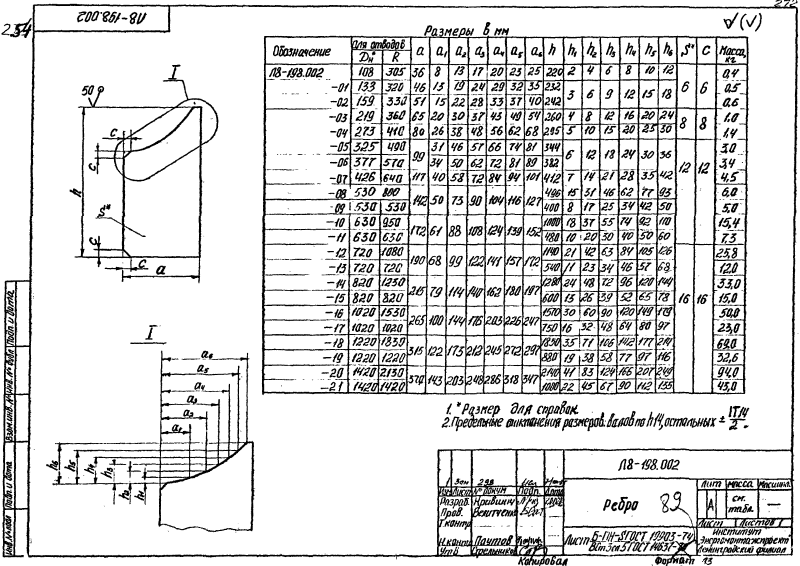 Л8-198.002
254
272
√(√)
Размеры в мм
Обозначение Для отводов a a₁ a₂ a₃ a₄ a₅ a₆ h h₁ h₂ h₃ h₄ h₅ h₆ S* c Масса, кг
Dн* R
Л8-198.002 108 305 36 8 13 17 20 23 25 220 2 4 6 8 10 12 6 6 0,4
-01 133 320 46 13 19 24 29 32 35 232 3 6 9 12 15 18 0,5
-02 159 330 51 15 22 28 33 37 40 242 0,6
-03 219 360 65 20 30 37 43 49 54 260 4 8 12 16 20 24 8 8 1,0
-04 273 410 80 26 38 48 56 62 68 295 5 10 15 20 25 30 1,4
-05 325 400 99 31 46 57 66 74 81 344 6 12 18 24 30 36 12 12 3,0
-06 377 570 34 50 62 72 81 89 382 3,4
-07 426 640 117 40 58 72 84 94 101 412 7 14 21 28 35 42 4,5
-08 530 800 142 50 73 90 104 116 127 496 15 31 46 62 77 93 6,0
-09 530 530 400 8 17 25 34 42 50 5,0
-10 630 950 172 61 88 108 124 139 152 1000 18 37 55 74 92 110 15,4
-11 630 630 480 10 20 30 40 50 60 7,3
-12 720 1080 190 68 99 122 141 157 172 1140 21 42 63 84 105 126 16 16 25,8
-13 720 720 540 11 23 34 46 57 68 12,0
-14 820 1230 215 79 114 140 162 180 197 1280 24 48 72 96 120 144 33,0
-15 820 820 600 13 26 39 52 65 78 15,0
-16 1020 1530 265 100 144 176 203 226 247 1570 30 60 90 120 149 179 50,0
-17 1020 1020 750 16 32 48 64 80 97 23,0
-18 1220 1830 315 122 173 212 245 272 297 1850 35 71 106 142 177 214 69,0
-19 1220 1220 880 19 38 58 77 97 116 32,6
-20 1420 2130 370 143 203 248 286 318 347 2140 41 83 124 166 207 249 94,0
-21 1420 1420 1000 22 45 67 90 112 135 43,0
I
50
c
c
h
S*
c
c
a
I
a₆
a₅
a₄
a₃
a₂
a₁
h₆ h₅ h₄ h₃ h₂ h₁
1. * Размер для справок
2. Предельные отклонения размеров: валов по h14, остальных ± IT14/2.
Л8-198.002
1 Зам 298
Изм Лист № докум Подп. Дата
Разраб.
Пров.
Т.контр
Н.контр Паутов
Утв Стрельников
Ребро 89
Лит Масса Масштаб
А см. табл. —
Лист Листов 1
Лист Б-ПН-S ГОСТ 19903-74
ВСт3сп5 ГОСТ 14637-
Институт
Энергомонтажпроект
Ленинградский филиал
Копировал Формат
Подп. и дата
Взам.инв. №
Инв. № дубл
Подп. и дата